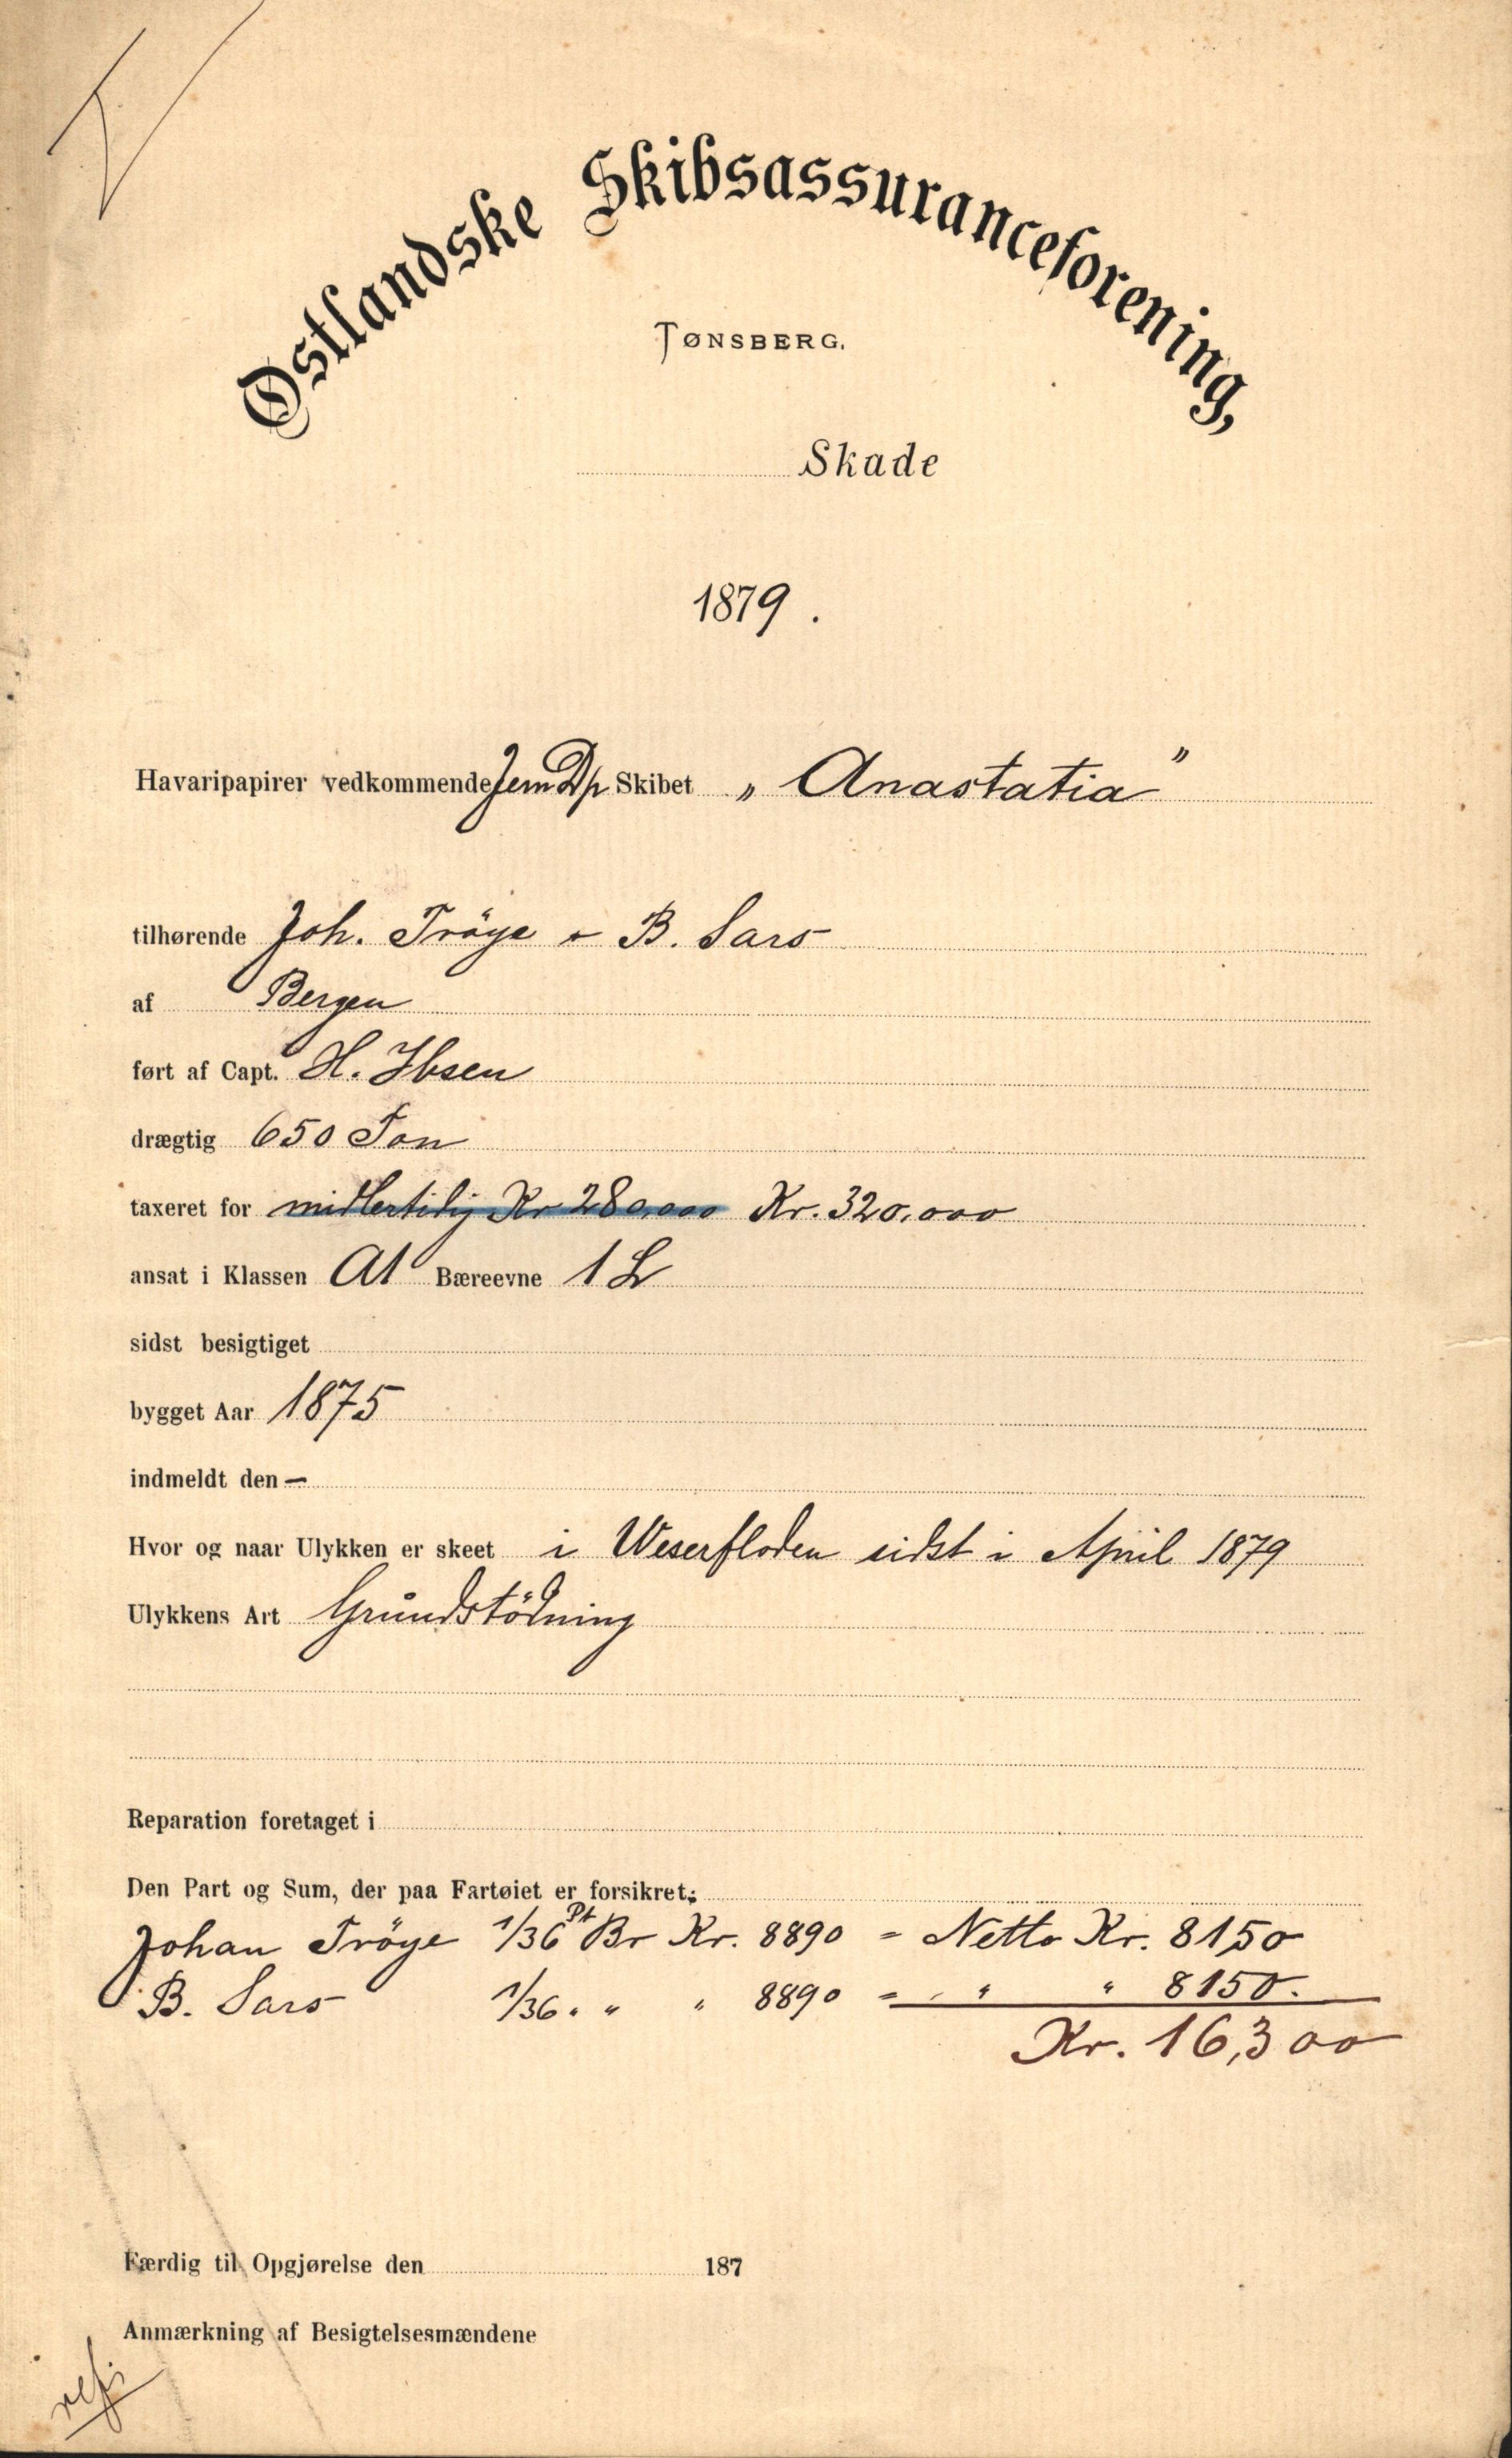 Østlandske Skibsassuranceforening,
TØNSBERG.
Skade
1879.
Havaripapirer vedkommende Jern Dp Skibet „ Anastatia "
tilhørende Joh. Tröye & B. Sars
af Bergen
ført af Capt. H. Ibsen
drægtig 650 Ton
taxeret for midlertidig Kr 280,000 Kr. 320,000
ansat i Klassen A1 Bæreevne 1 L
sidst besigtiget
bygget Aar 1875
indmeldt den —
Hvor og naar Ulykken er skeet i Weserfloden sidst i April 1879
Ulykkens Art Grundstödning
Reparation foretaget i
Den Part og Sum, der paa Fartøiet er forsikret:
Johan Tröye 1/36 Pt Br Kr. 8890 = Netto Kr. 8150
B. Sars 1/36 " " " 8890 = " " 8150.
Kr. 16,300
Færdig til Opgjørelse den 187
Anmærkning af Besigtelsesmændene